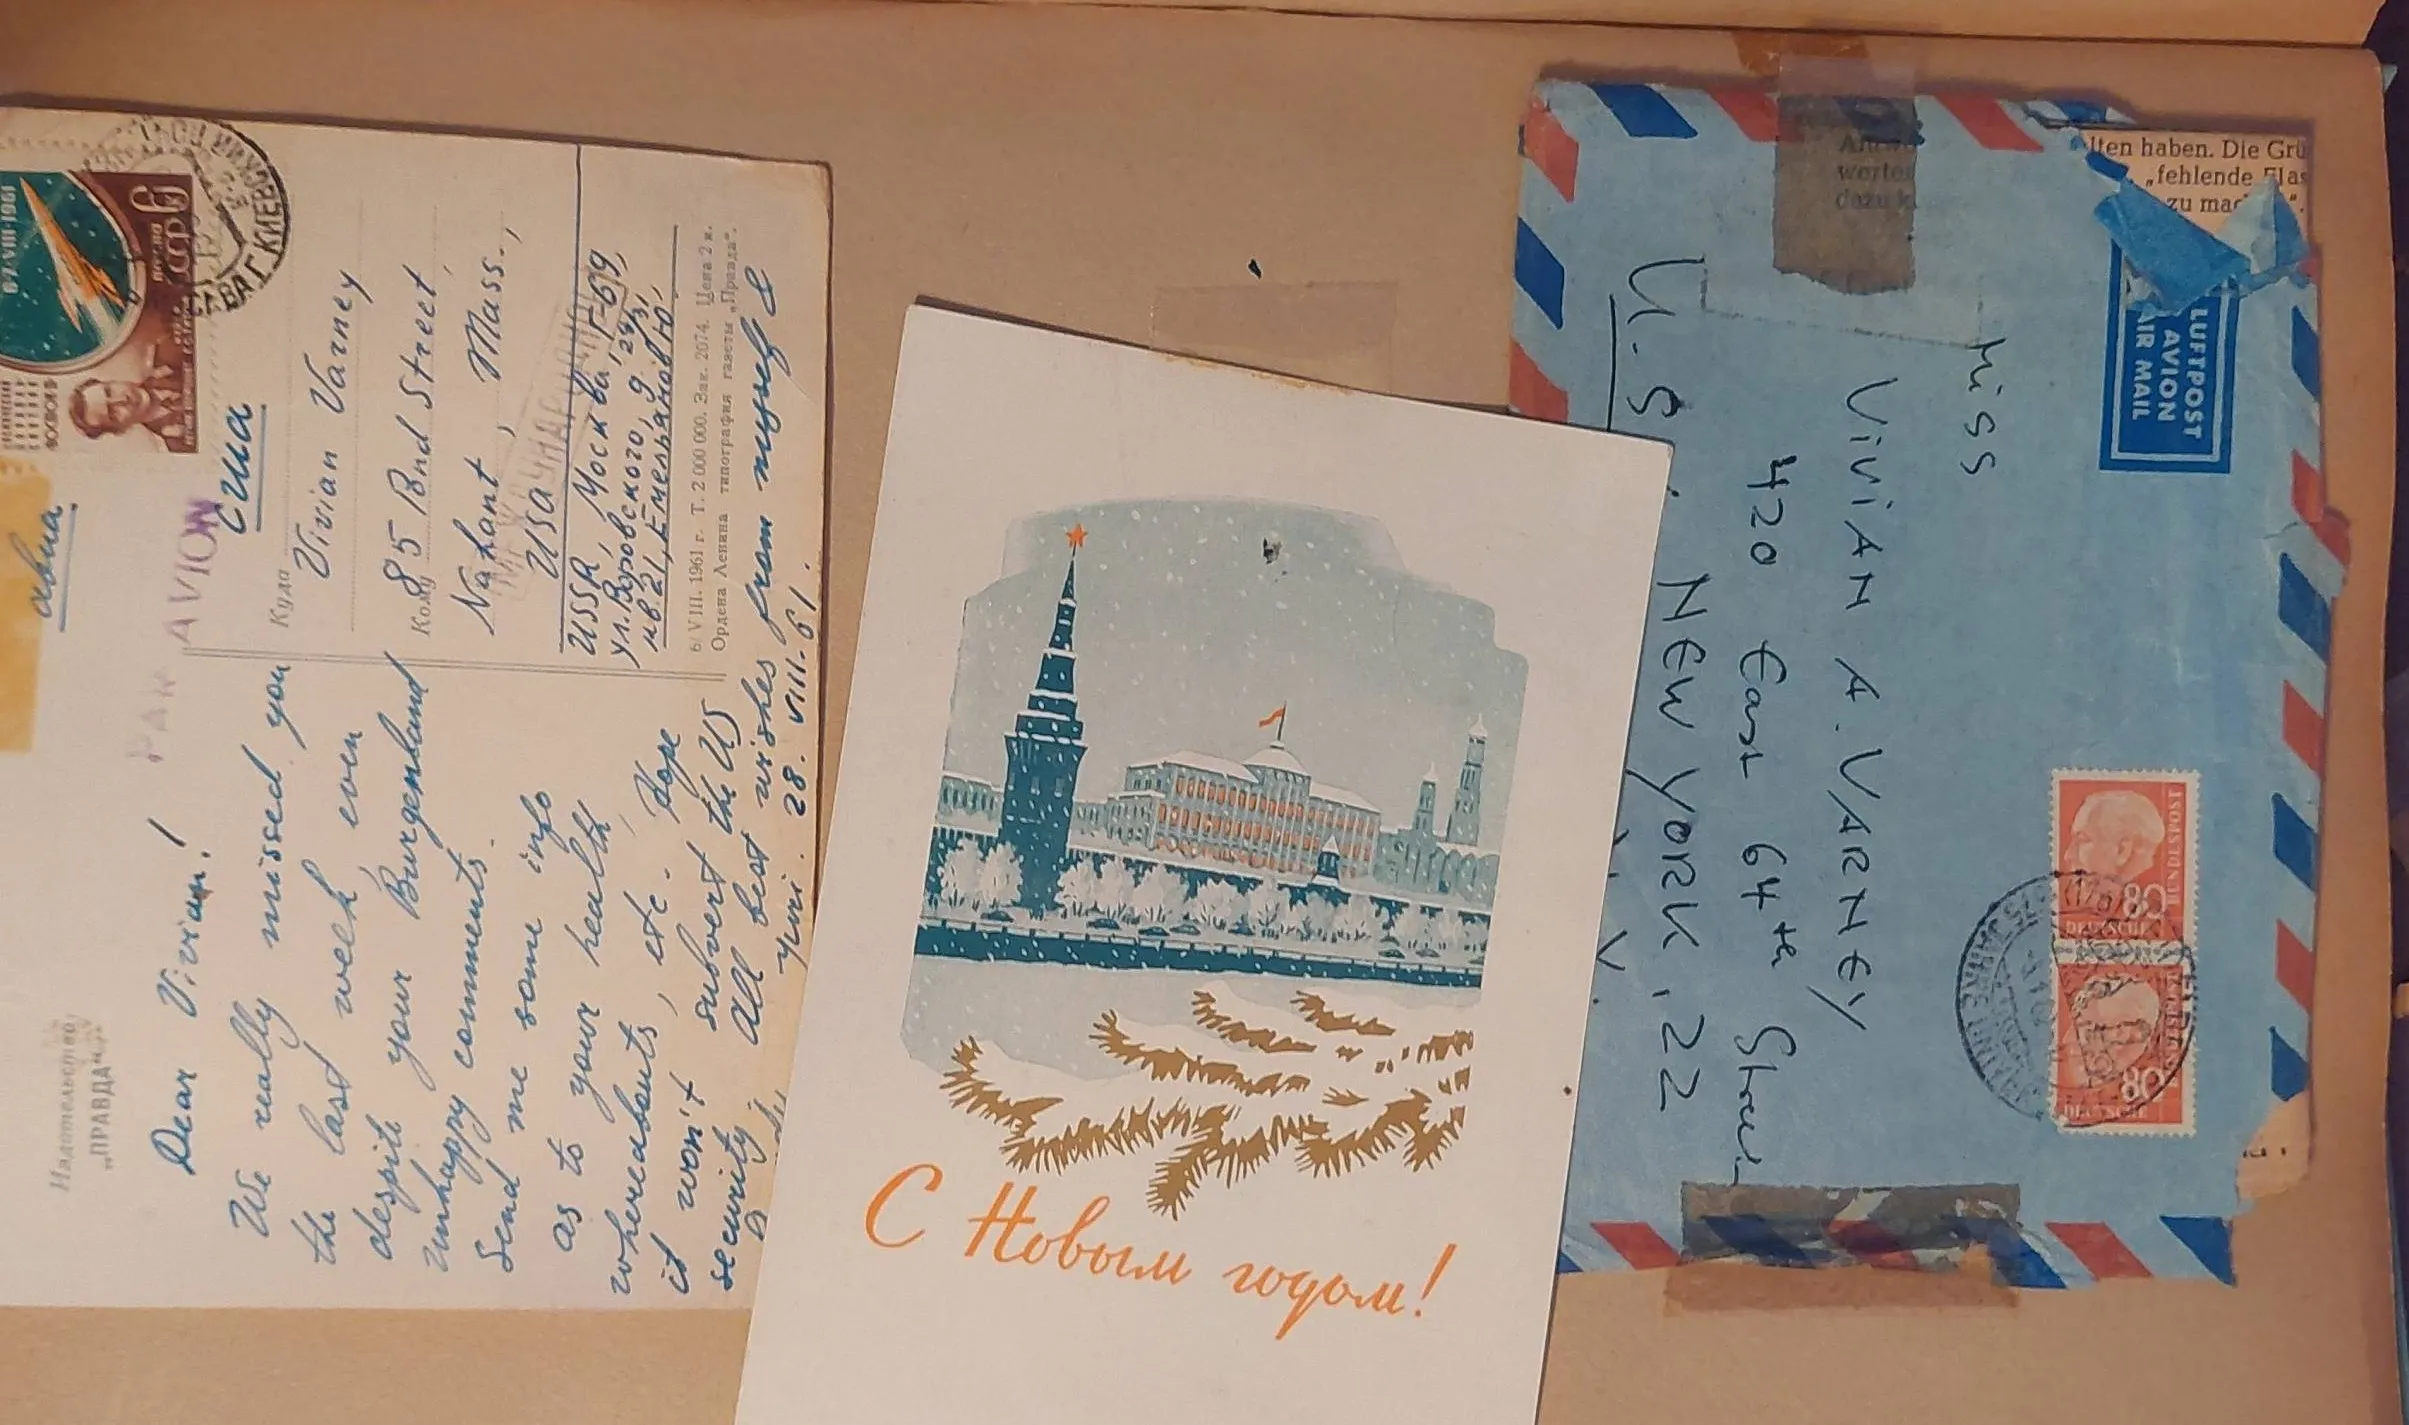 Издательство
„ПРАВДА"
Dear Vivian!
We really missed you
the last week, even
despite your Burgenland
unhappy comments.
Send me some info
as to your health,
whereabouts, etc. Hope
it won't subvert the US
security
All best wishes from myself &
yuri. 28.VIII-61.
6-7-VIII-1961
ПОЧТА
СССР
PAR AVION
США
Куда
Vivian Varney
Кому 85 Bnd Street,
Nahant, Mass.,
USA
МЕЖДУНАРОДНОЕ
USSR, Москва, Г-69,
ул. Воровского, 9
кв 21, Емельянов Ю.
6/VIII. 1961 г. Т. 2 000 000. Зак. 2074. Цена 2 к.
Ордена Ленина типография газеты „Правда".
С Новым годом!
lten haben. Die Grü
„fehlende Flas
zu mac
dazu k
LUFTPOST
AVION
AIR MAIL
Miss
ViViAN A. VARNEY
420 East 64th Street
NEW YORK, 22
N.Y.
U.S.
80
DEUTSCHE
BUNDESPOST
80
DEUTSCHE